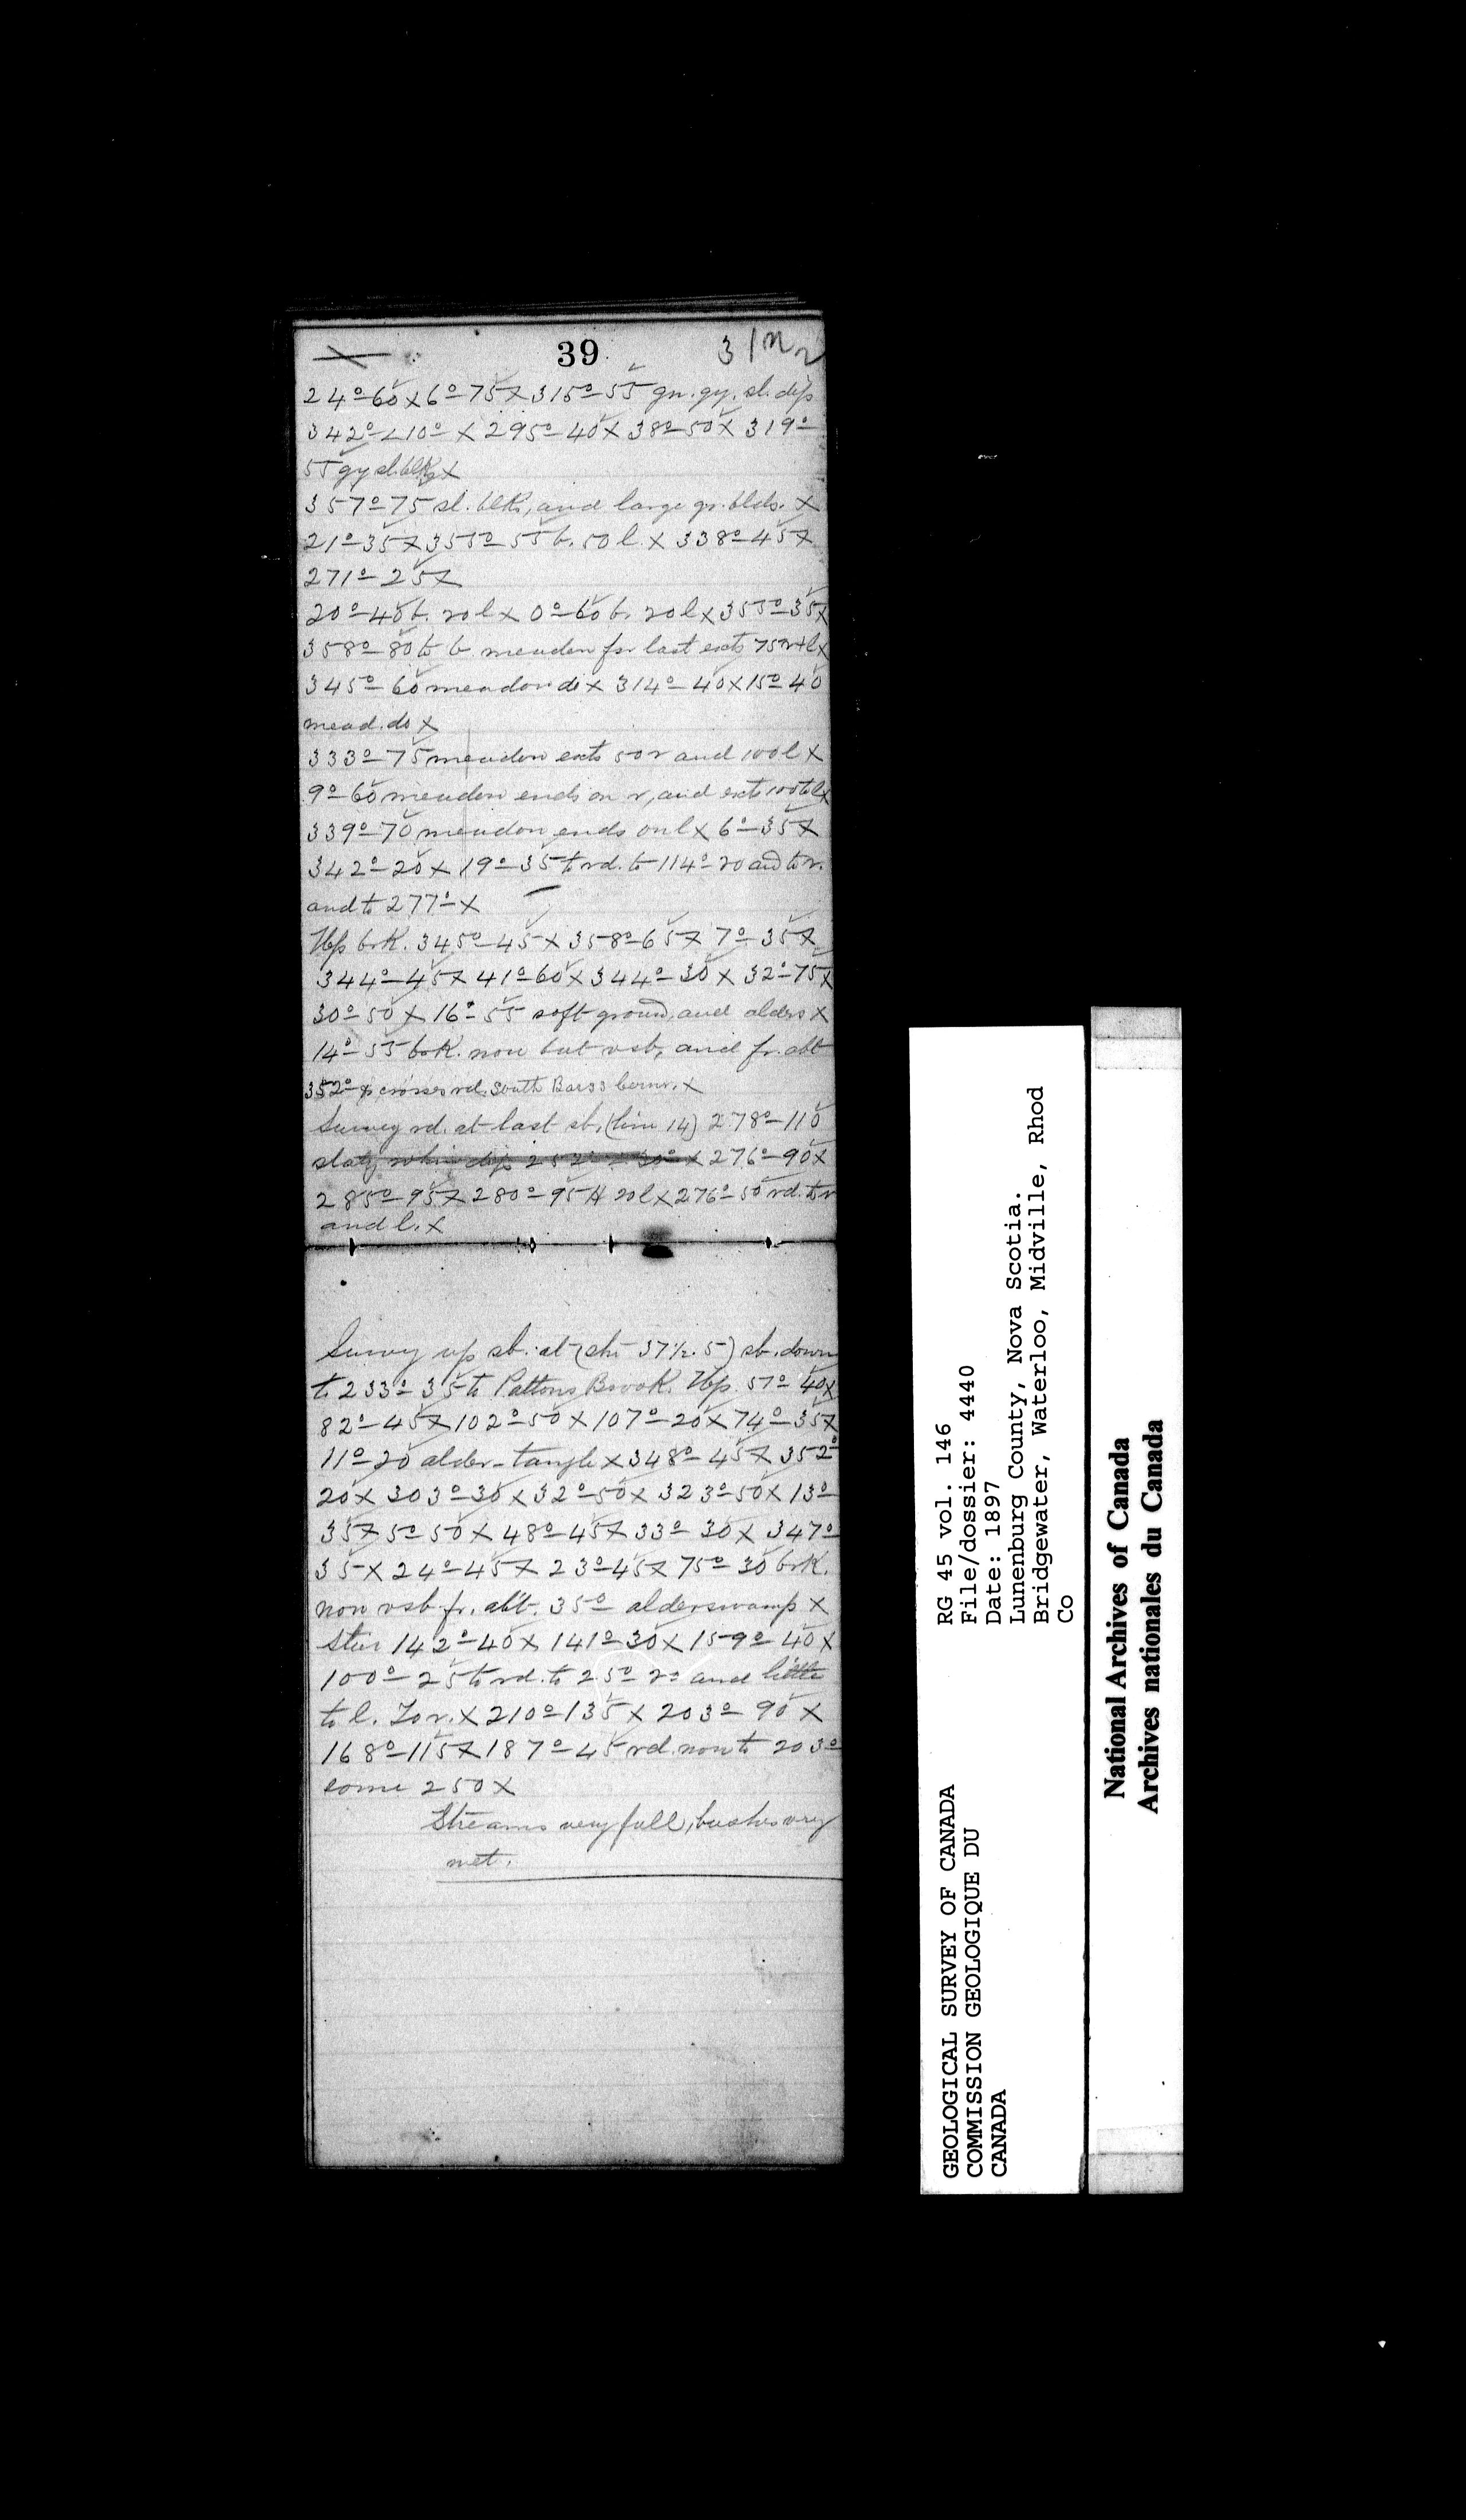 39
24°-60 x 6°-75 x 315°-55 gn. gy. sl. dip
342°-<10° x 295°-40 x 38°-50 x 319°-
55 gy sl. blks x
357°-75 sl. blks, and large gr. blds. x
21°-35 x 355°-55 b. 50 l. x 338°-45 x
271°-25 x
20°-40 b. 20 l x 0°-60 b. 20 l x 355°-35 x
358°-80 to b. meadow for last exts 75 r + l x
345°-60 meadow do x 314°-40 x 15°-40
mead. do x
333°-75 meadow exts 50 r and 100 l x
9°-60 meadow ends on r, and exts 100 to l x
339°-70 meadow ends on l x 6°-35 x
342°-20 x 19°-35 to rd. to 114°-20 and to r.
and to 277°- x
Up brk. 345°-45 x 358°-65 x 7°-35 x
344°-45 x 41°-60 x 344°-30 x 32°-75 x
30°-50 x 16°-55 soft ground, and alders x
14°-55 brk. now but vsb, and fr. abt
352° crosses rd. South Barss corner. x
Survey rd. at last sb, (line 14) 278°-110
slaty 276°-90 x
285°-95 x 280°-95 H 20 l x 276°-50 rd. to r
and l. x
Survey up sb. at (sht 37 1/2. 5) sb. down
to 233°-35 to Pattons Brook. Up. 57°-40 x
82°-45 x 102°-50 x 107°-20 x 74°-35 x
11°-20 alder-tangle x 348°-45 x 352°
20 x 303°-30 x 32°-50 x 323°-50 x 13°-
35 x 5°-50 x 48°-45 x 33°-30 x 347°-
35 x 24°-45 x 23°-45 x 75°-30 brk.
now vsb fr. abt. 35° alderswamp x
Steer 142°-40 x 141°-30 x 159°-40 x
100°-25 to rd. to 25° r° and little
to l. To r. x 210°-135 x 203°-90 x
168°-115 x 187°-45 rd. now to 203°
come 250 x
Streams very full, bushes very
wet.
GEOLOGICAL SURVEY OF CANADA
COMMISSION GEOLOGIQUE DU
CANADA
RG 45 vol. 146
File/dossier: 4440
Date: 1897
Lunenburg County, Nova Scotia.
Bridgewater, Waterloo, Midville, Rhod
Co
National Archives of Canada
Archives nationales du Canada